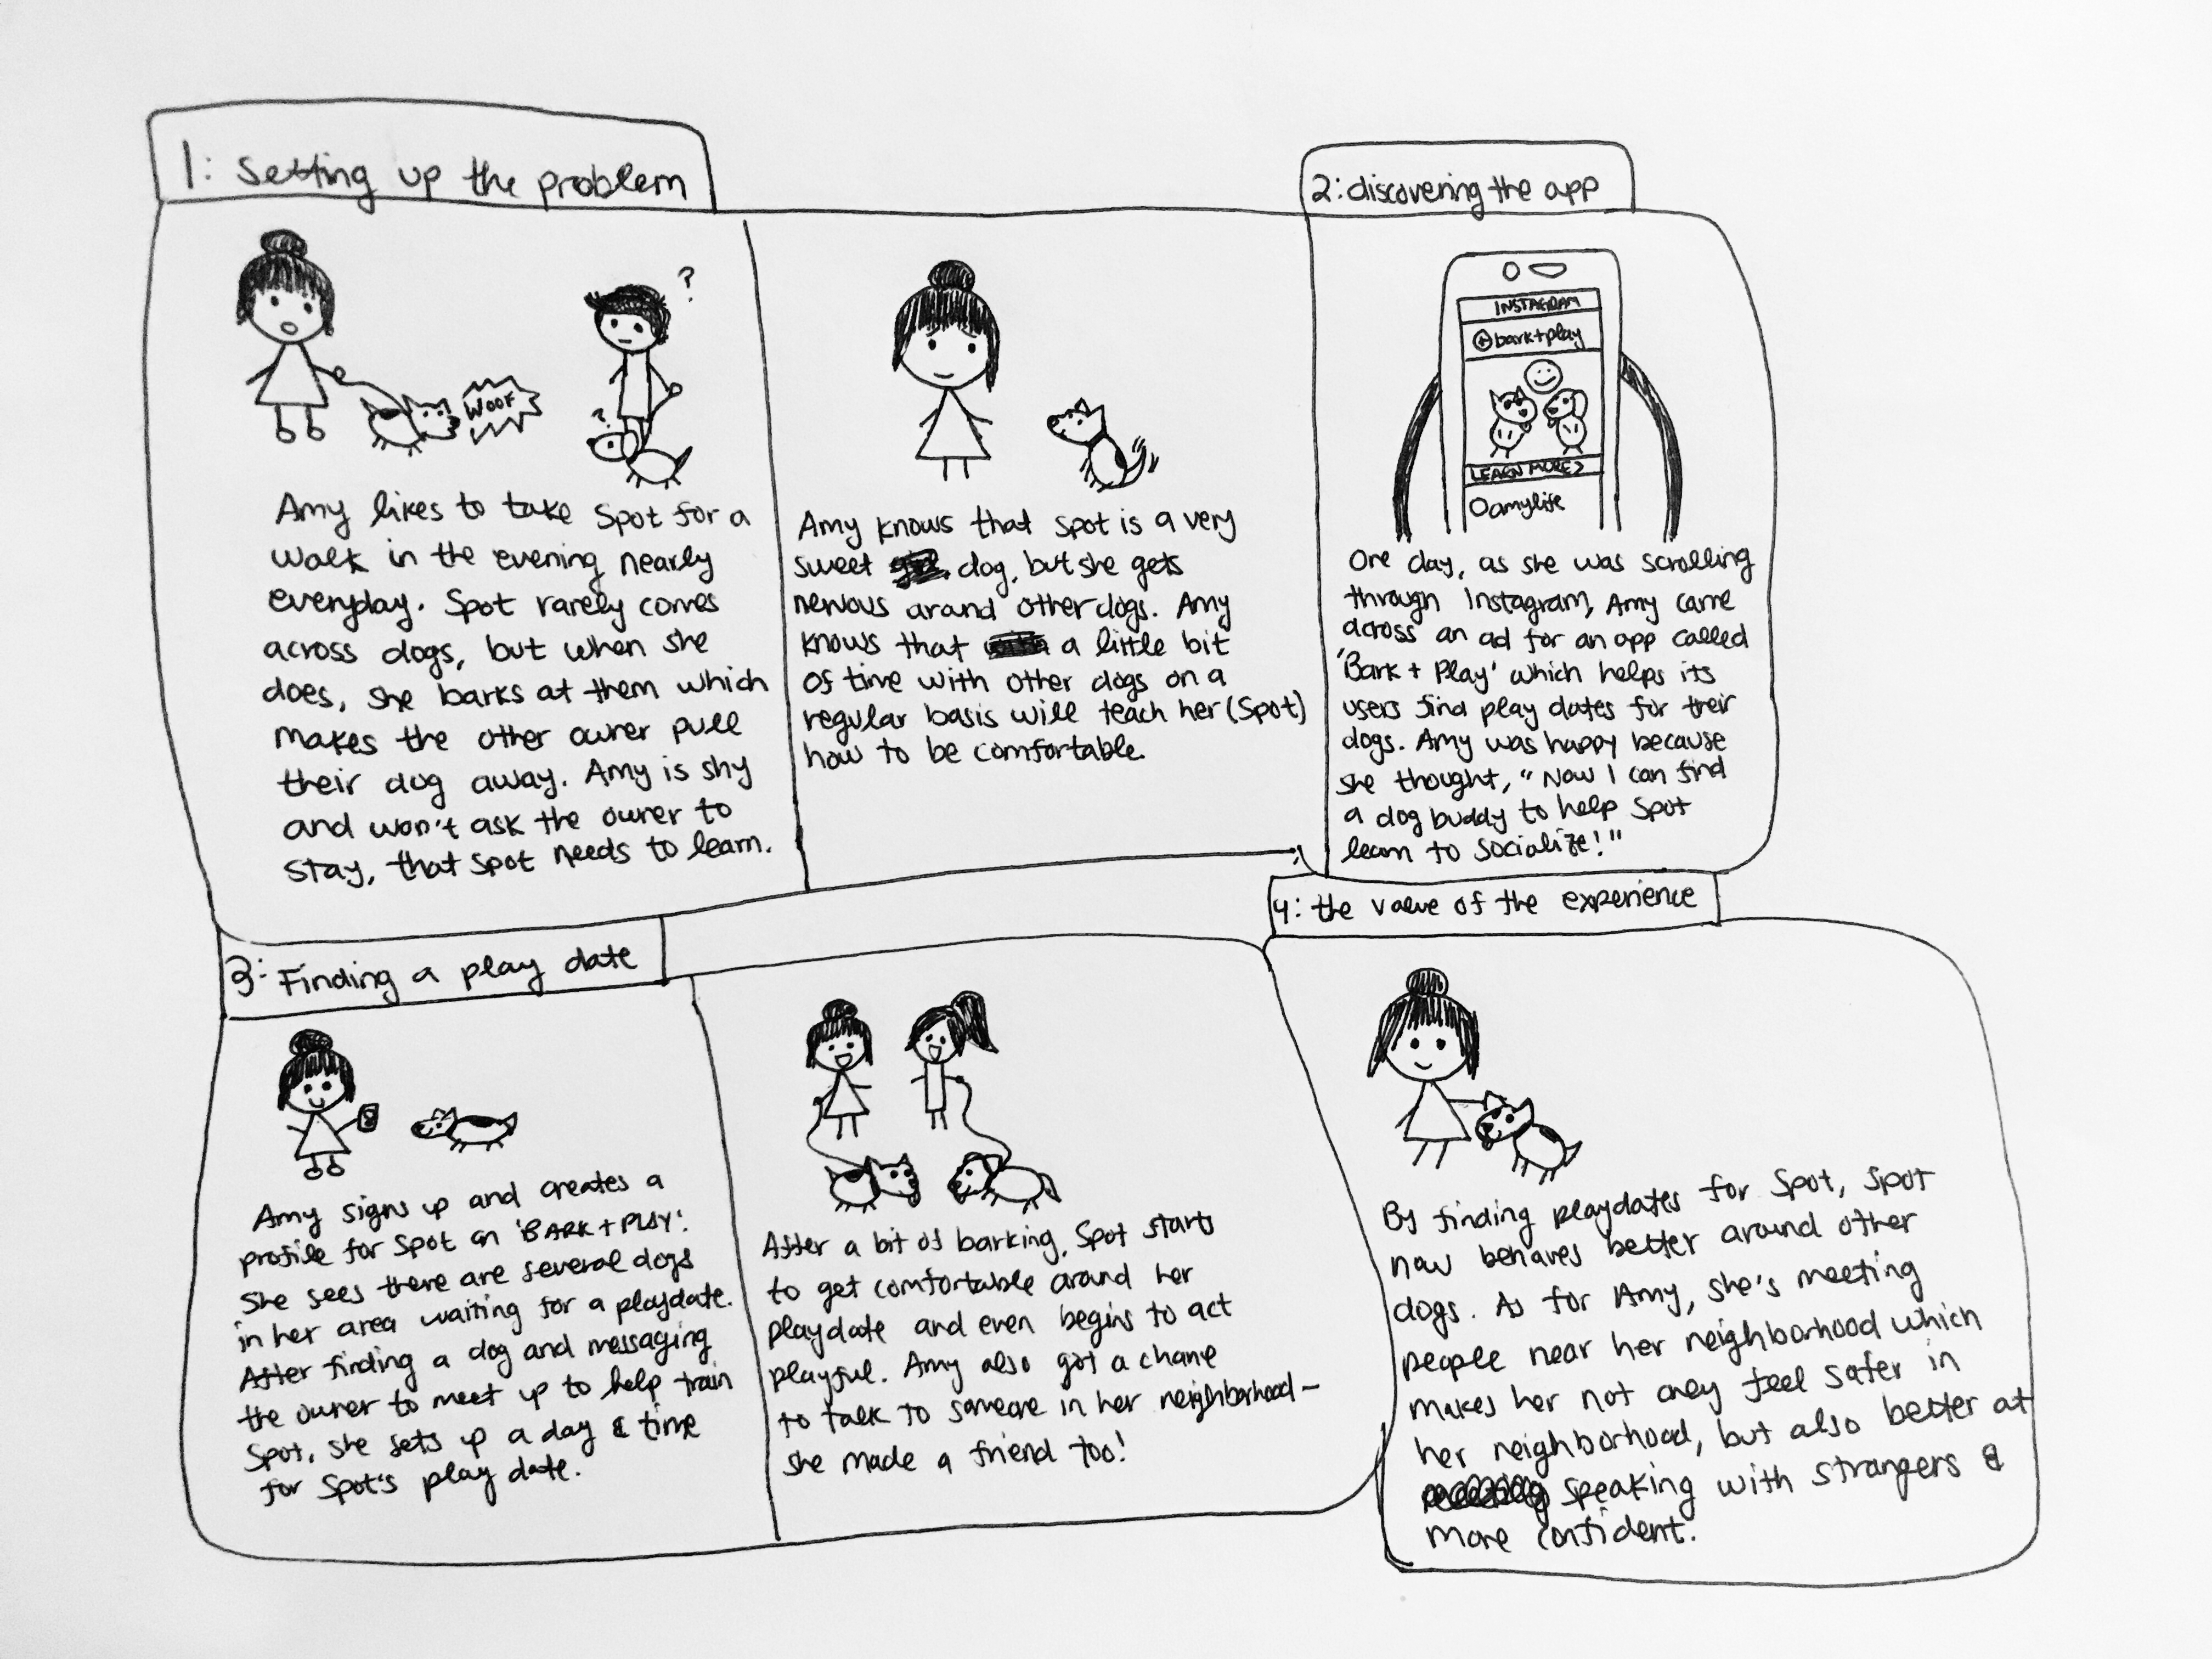 1: Setting up the problem
?
?
WOOF
Amy likes to take Spot for a
walk in the evening nearly
everyday. Spot rarely comes
across dogs, but when she
does, she barks at them which
makes the other owner pull
their dog away. Amy is shy
and won't ask the owner to
stay, that Spot needs to learn.
Amy knows that spot is a very
sweet dog, but she gets
nervous around other dogs. Amy
knows that a little bit
of time with other dogs on a
regular basis will teach her (Spot)
how to be comfortable.
2: discovering the app
INSTAGRAM
@bark+play
LEARN MORE >
amylife
One day, as she was scrolling
through Instagram, Amy came
across an ad for an app called
'Bark + Play' which helps its
users find play dates for their
dogs. Amy was happy because
she thought, "Now I can find
a dog buddy to help Spot
learn to socialize!"
3: Finding a play date
Amy signs up and creates a
profile for Spot on 'BARK + PLAY'.
She sees there are several dogs
in her area waiting for a playdate.
After finding a dog and messaging
the owner to meet up to help train
Spot, she sets up a day & time
for Spot's play date.
After a bit of barking, Spot starts
to get comfortable around her
playdate and even begins to act
playful. Amy also got a chane
to talk to someone in her neighborhood–
she made a friend too!
4: the value of the experience
By finding playdates for Spot, Spot
now behaves better around other
dogs. As for Amy, she's meeting
people near her neighborhood which
makes her not only feel safer in
her neighborhood, but also better at
speaking with strangers &
more confident.